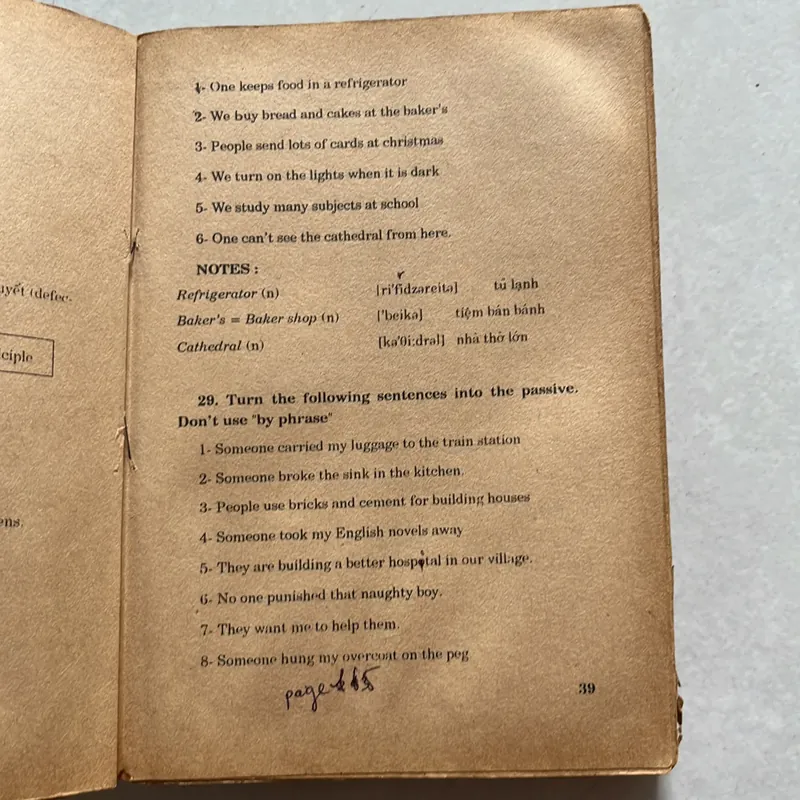 uyết (defec-
ciple
ens.
1- One keeps food in a refrigerator
2- We buy bread and cakes at the baker's
3- People send lots of cards at christmas
4- We turn on the lights when it is dark
5- We study many subjects at school
6- One can't see the cathedral from here.
NOTES :
Refrigerator (n) [ri'fidzəreitə] tủ lạnh
r
Baker's = Baker shop (n) ['beikə] tiệm bán bánh
Cathedral (n) [kə'θi:drəl] nhà thờ lớn
29. Turn the following sentences into the passive.
Don't use "by phrase"
1- Someone carried my luggage to the train station
2- Someone broke the sink in the kitchen.
3- People use bricks and cement for building houses
4- Someone took my English novels away
5- They are building a better hospital in our village.
6- No one punished that naughty boy.
7- They want me to help them.
8- Someone hung my overcoat on the peg
page
39